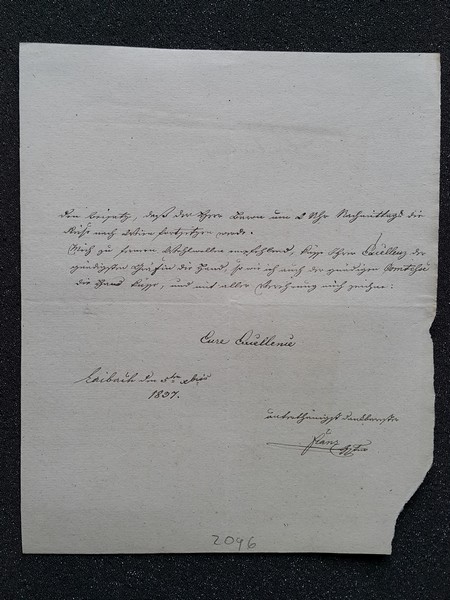 den Beisatz, daß der Herr Baron um 2 Uhr Nachmittags die
Reise nach Wien fortsetzen werde.
Mich zu fernern Wohlwollen empfehlend, küsse Ihrer Excellenz der
gnädigsten Gräfin die Hand, so wie ich auch der gnädigen
die Hand küsse, und mit aller Verehrung mich zeichne:
Eure Excellence
Laibach den
1837.
unterthänigst dankbarster
Franz
2096